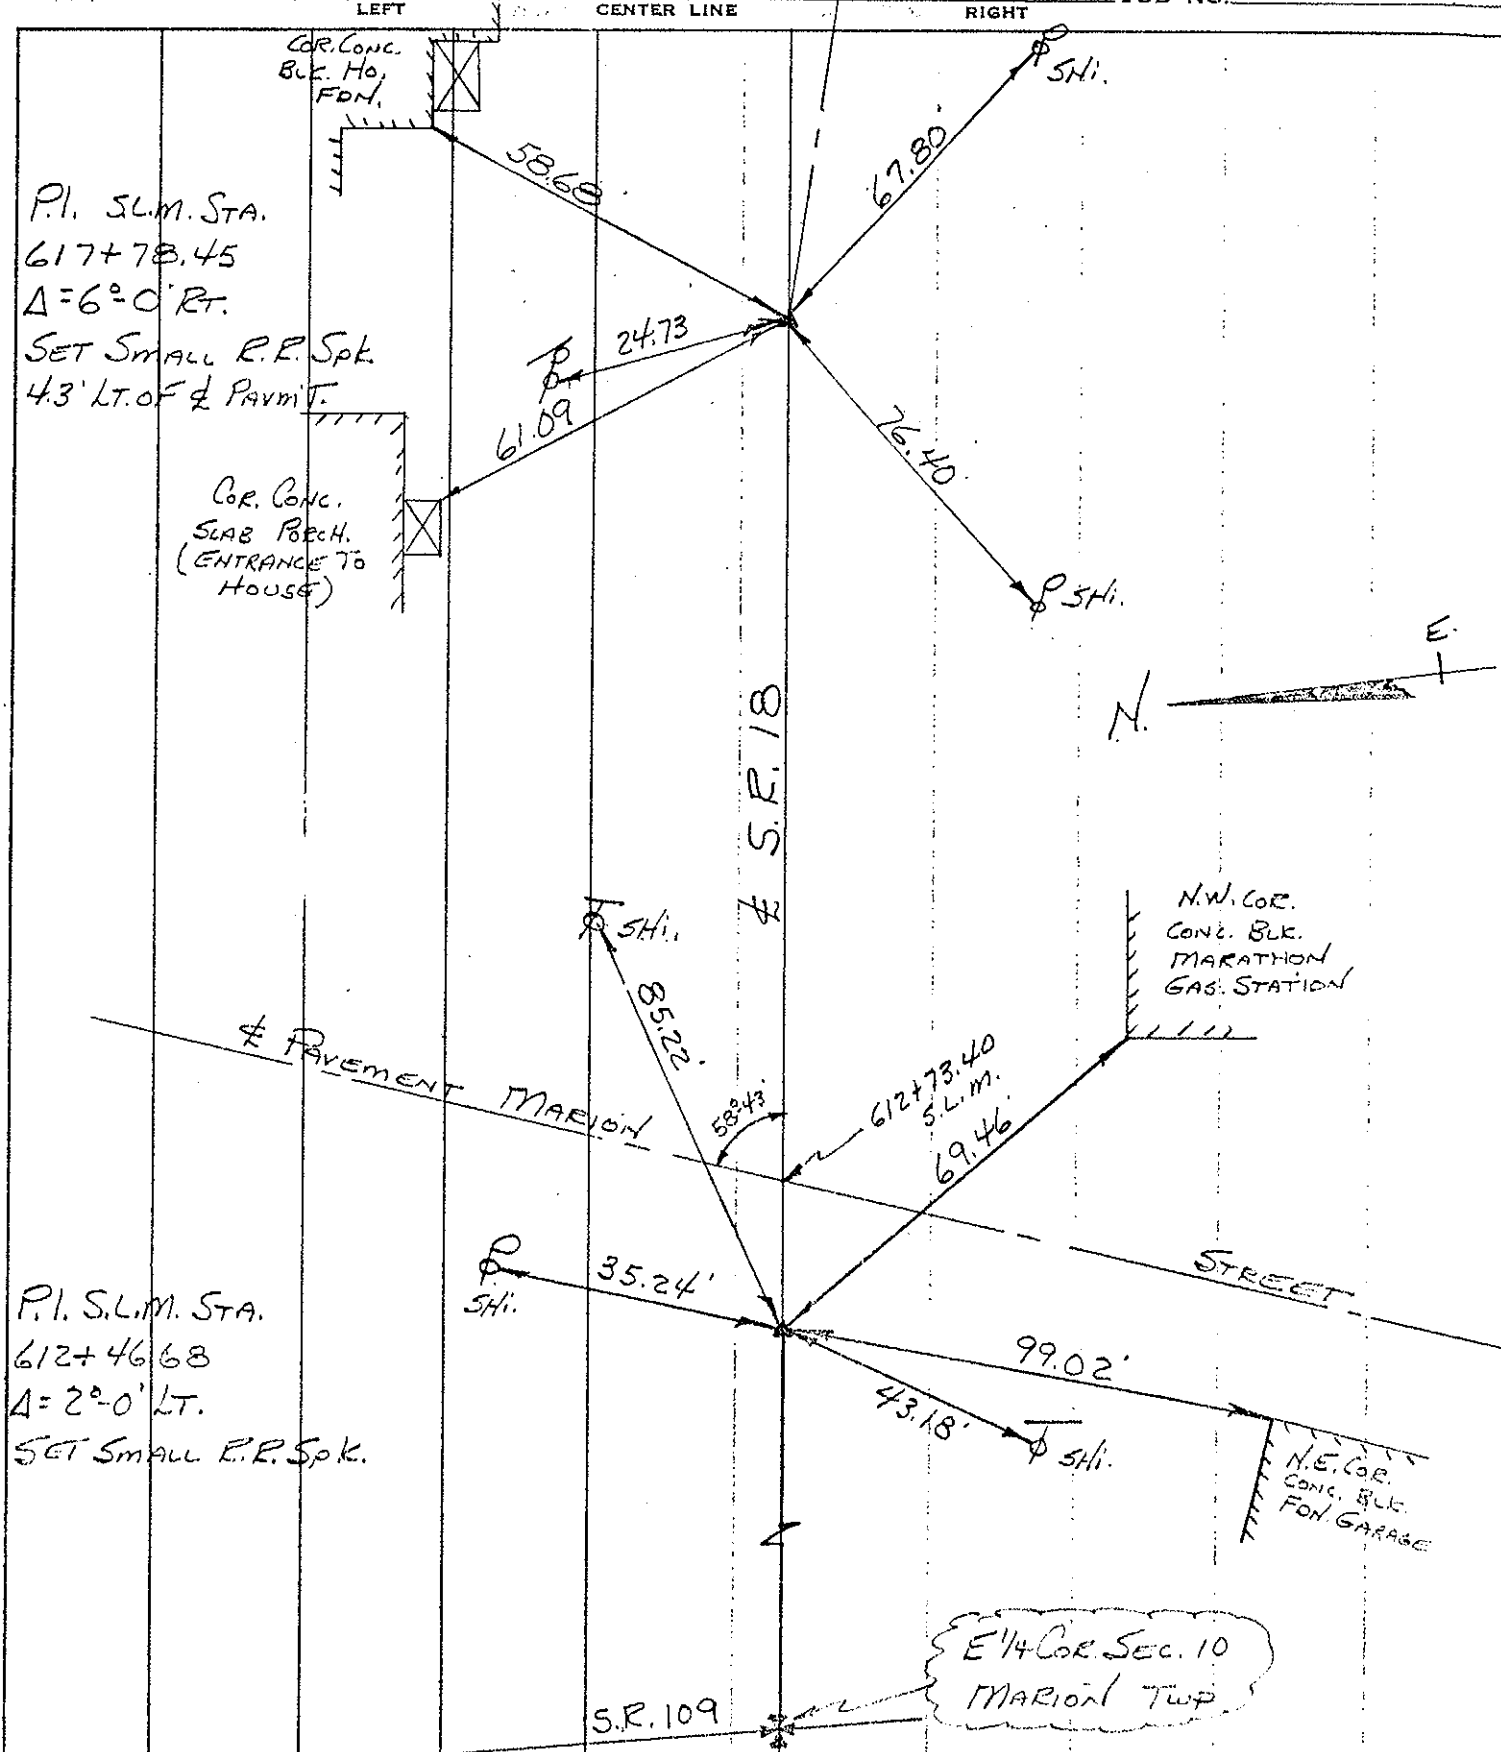 LEFT
CENTER LINE
RIGHT
COR. CONC.
BLK. HO.
FDN.
SHi.
58.68
67.80
P.I. S.L.M. STA.
617+78.45
Δ=6°-0' RT.
SET SMALL R.R. SPK.
4.3' LT. OF ℄ PAVM'T.
24.73
61.09
76.40
COR. CONC.
SLAB PORCH.
(ENTRANCE TO
HOUSE)
SHi.
E.
N.
℄ S.R. 18
SHi.
N.W. COR.
CONC. BLK.
MARATHON
GAS. STATION
85.22'
℄ PAVEMENT MARION STREET
58°-43'
612+73.40
S.L.M.
69.46'
SHi.
35.24'
P.I. S.L.M. STA.
612+46.68
Δ=2°-0' LT.
SET SMALL R.R. SPK.
99.02'
43.18'
SHi.
N.E. COR.
CONC. BLK.
FDN. GARAGE
E 1/4 COR. SEC. 10
MARION TWP.
S.R. 109